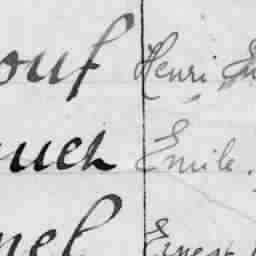 ouf Henri
uch Emile.
nel Ernest